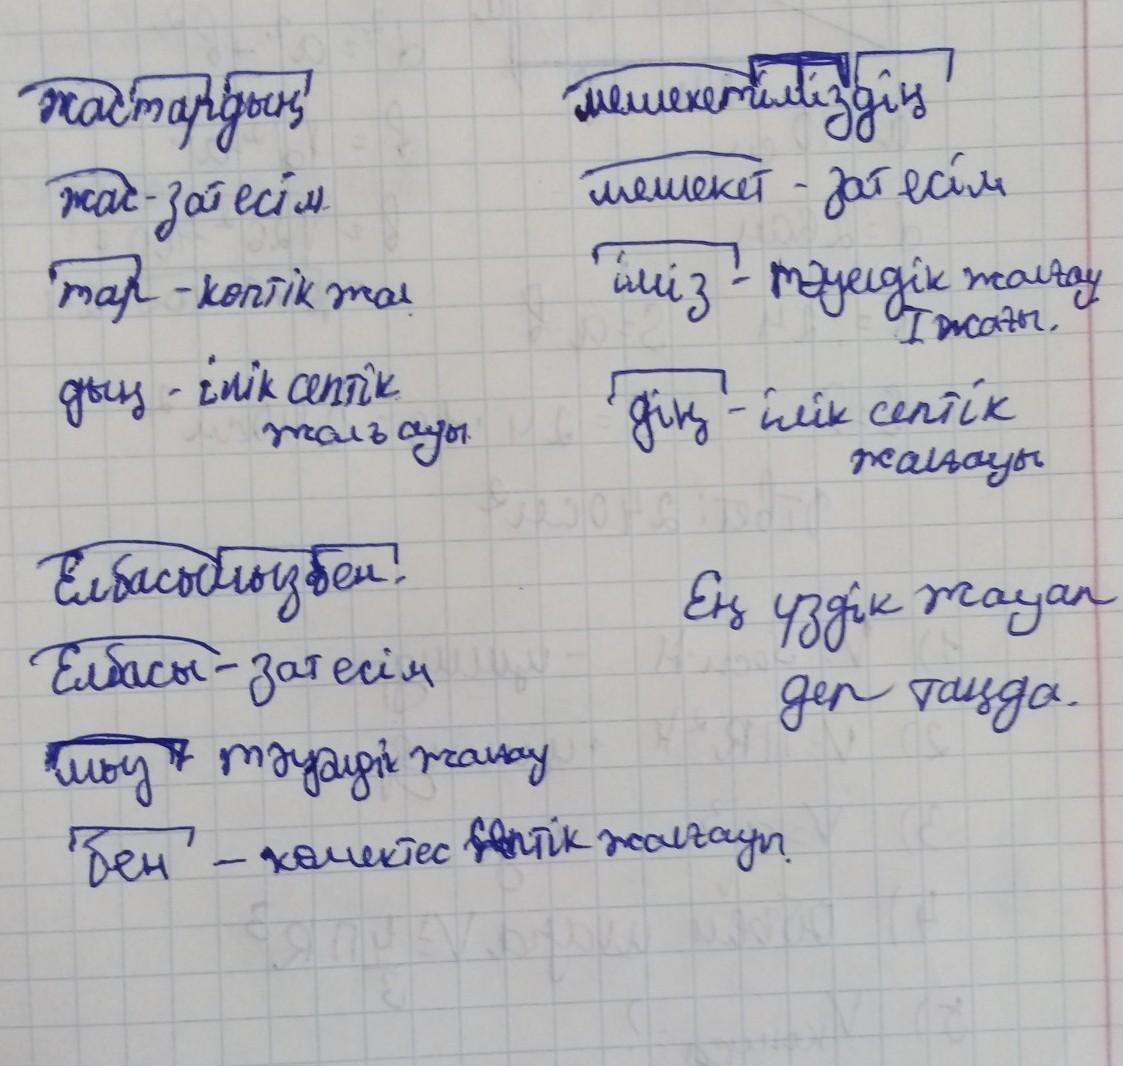 жастардың
жас-зат есім
тар - көптік жал
дың - ілік септік
жалғауы
мемлекетіміздің
мемлекет - зат есім
іміз - тәуелдік жалғау
I жағы.
дің - ілік септік
жалғауы
Елбасымызбен.
Елбасы - зат есім
мыз - тәуелдік жалғау
бен - көмектес септік жалғауы.
Ең үздік жауап
деп таңда.